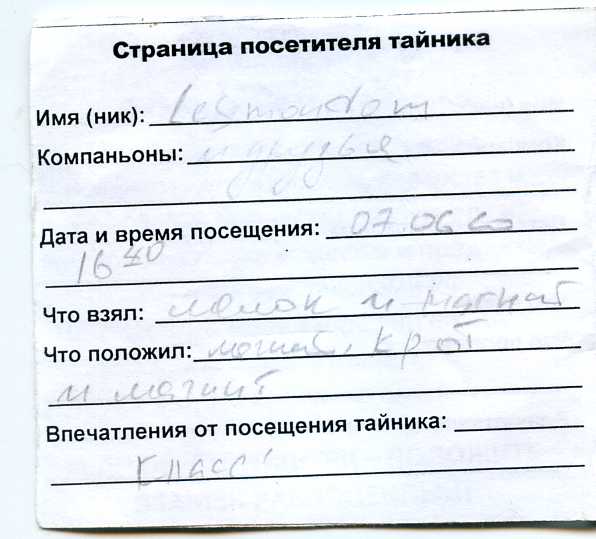 Страница посетителя тайника
Имя (ник):
Компаньоны: и друзья
Дата и время посещения: 07.06
16 40
Что взял: и магнит
Что положил: магнит, крот
и магнит
Впечатления от посещения тайника:
Класс!